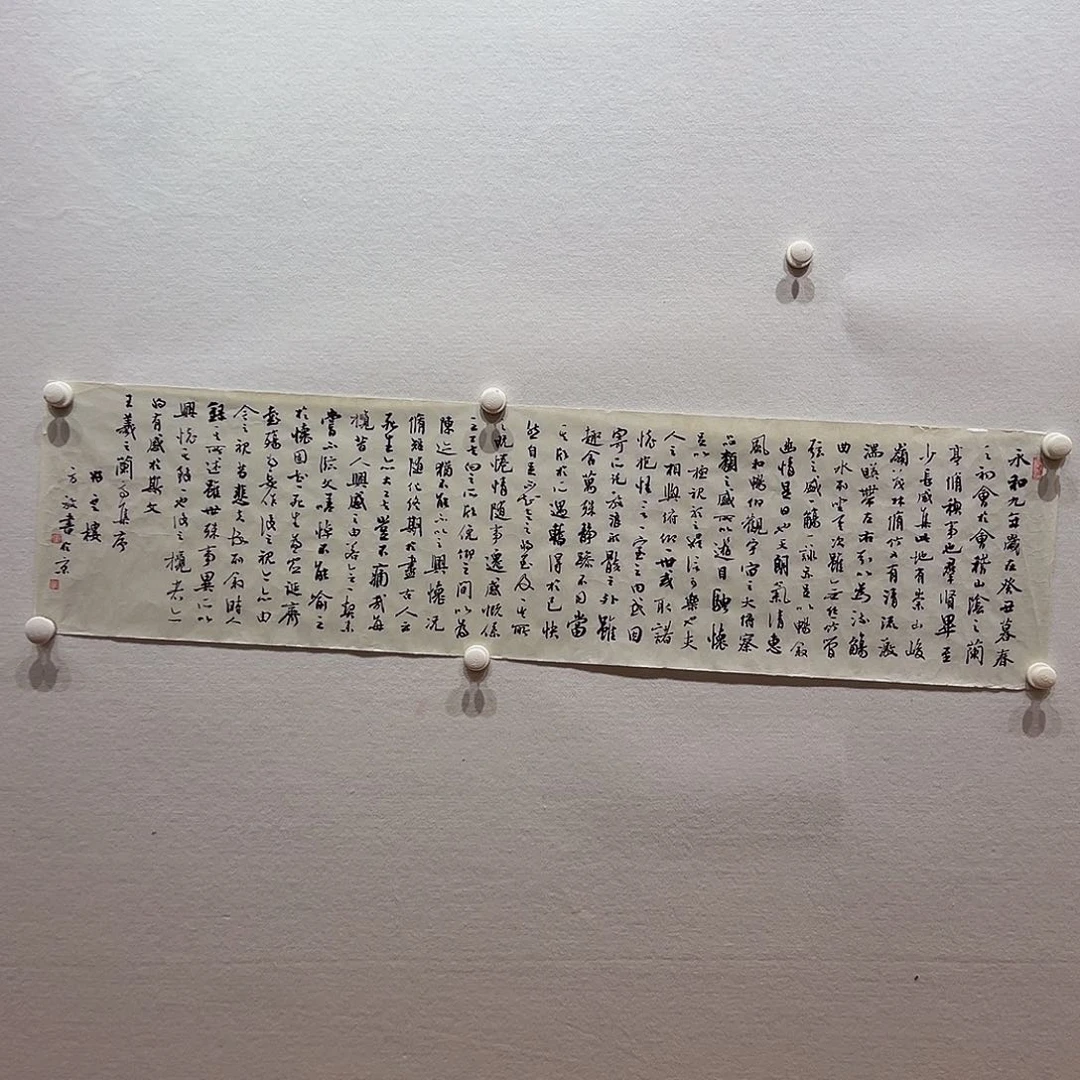 永和九年歲在癸丑暮春
之初會於會稽山陰之蘭
亭脩禊事也羣賢畢至
少長咸集此地有崇山峻
嶺茂林脩竹又有清流激
湍暎帶左右引以為流觴
曲水列坐其次雖無絲竹管
弦之盛一觴一詠亦足以暢敘
幽情是日也天朗氣清惠
風和暢仰觀宇宙之大俯察
品類之盛所以遊目騁懷
足以極視聽之娛信可樂也夫
人之相與俯仰一世或取諸
懷抱悟言一室之內或因
寄所託放浪形骸之外雖
趣舍萬殊靜躁不同當
其欣於所遇蹔得於己快
然自足不知老之將至及其所
之既惓情隨事遷感慨係
之矣向之所欣俛仰之間以為
陳迹猶不能不以之興懷況
脩短隨化終期於盡古人云
死生亦大矣豈不痛哉每
攬昔人興感之由若合一契未
嘗不臨文嗟悼不能喻之
於懷固知一死生為虛誕齊
彭殤為妄作後之視今亦由
今之視昔悲夫故列敘時人
錄其所述雖世殊事異所以
興懷其致一也後之攬者亦
將有感於斯文
王羲之蘭亭集序
樓
書於京